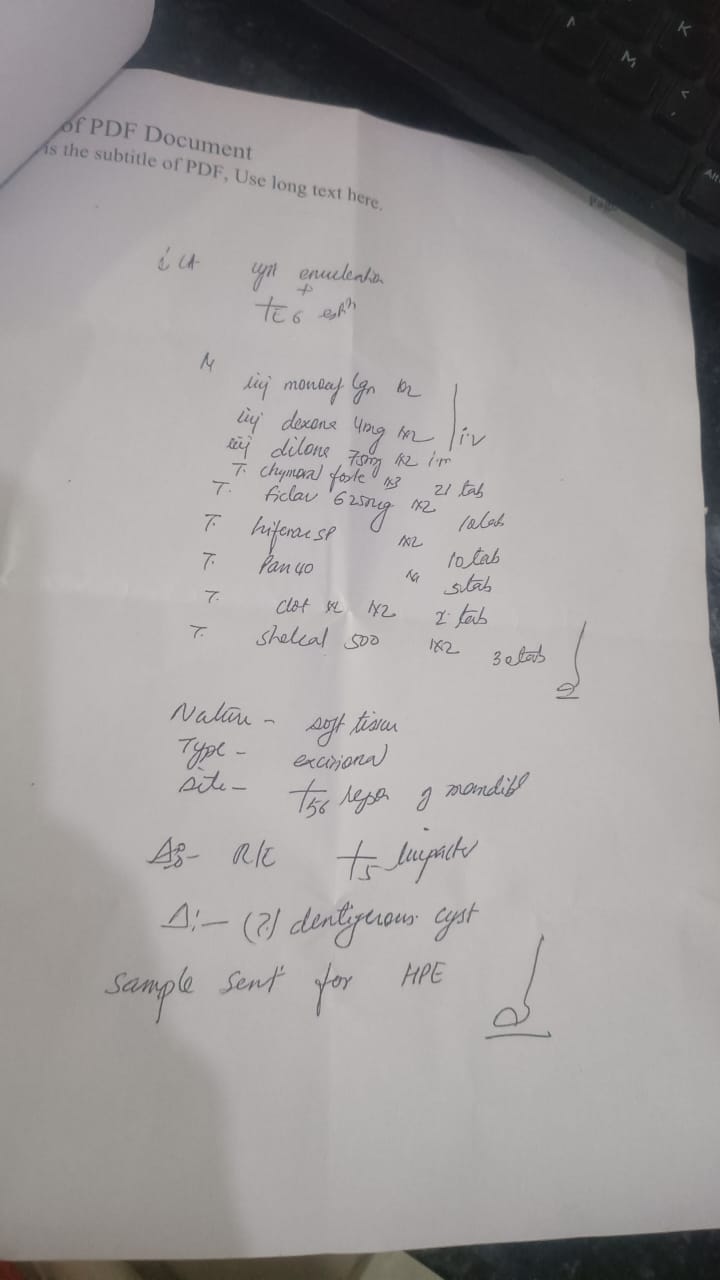 of PDF Document
is the subtitle of PDF, Use long text here.
cyst enucleation
+
inj monocef 1gn
inj dexona 4mg 1x2 i.v
inj dilona 75mg 1x2 i.m
T. chymoral forte 1x3 21 tab
T. ficlav 625mg 1x2 10tab
T. hifenac sp 1x2 10tab
T. Pan 40 5tab
T. clot 1x2 tab
T. shelcal 500 1x2 30tab
Nature - soft tissue
Type - excisional
site - 56 region of mandible
R/C 5 impacted
Δ:- (?) dentigerous cyst
sample sent for HPE